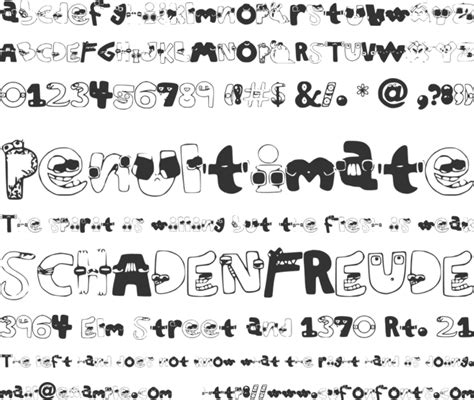 abcdefghijklmnopqrstuvwxyz
ABCDEFGHIJKLMNOPQRSTUVWXYZ
0123456789 !#$ &/. * @ ,?:;
penultimate
The spirit is willing but the flesh is weak
SCHADENFREUDE
3964 Elm Street and 1370 Rt. 21
The left hand does not know what the right hand is doing
mail@example.com